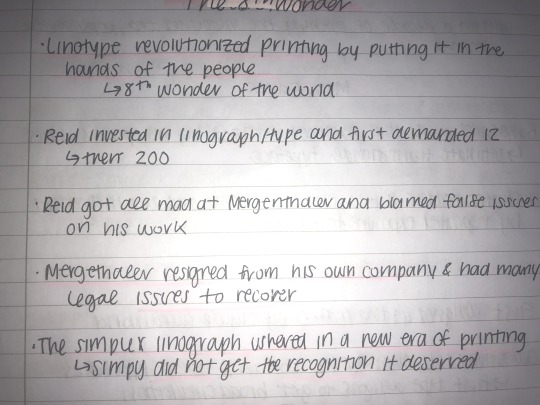 The 8th Wonder
· Linotype revolutionized printing by putting it in the
hands of the people
↳ 8th wonder of the world
· Reid invested in linograph/type and first demanded 12
↳ then 200
· Reid got all mad at Mergenthaler and blamed false issues
on his work
· Mergethaler resigned from his own company & had many
legal issues to recover
· The simplex linograph ushered in a new era of printing
↳ simpy did not get the recognition it deserved